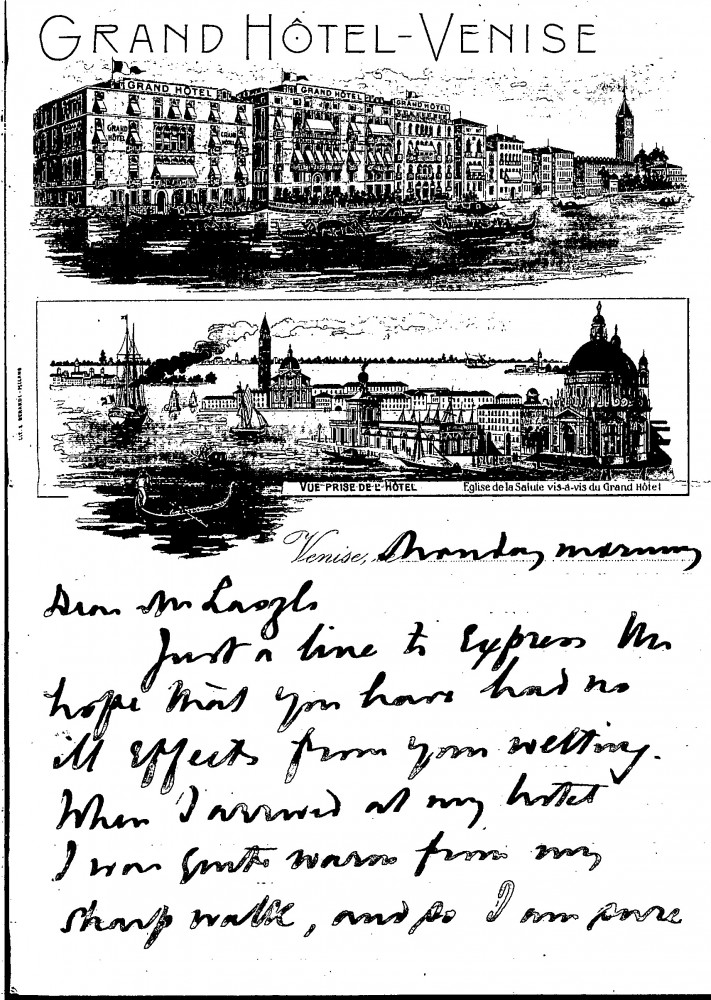 GRAND HÔTEL-VENISE
GRAND HOTEL
GRAND HOTEL
GRAND HOTEL
GRAND HOTEL
GRAND HOTEL
VUE PRISE DE L'HÔTEL
Eglise de la Salute vis-à-vis du Grand Hôtel
Venise, le Monday morning
Dear Mr Laszlo
Just a line to Express the
hope that you have had no
ill Effects from your wetting.
When I arrived at my hotel
I was quite warm from my
sharp walk, and so I am sure